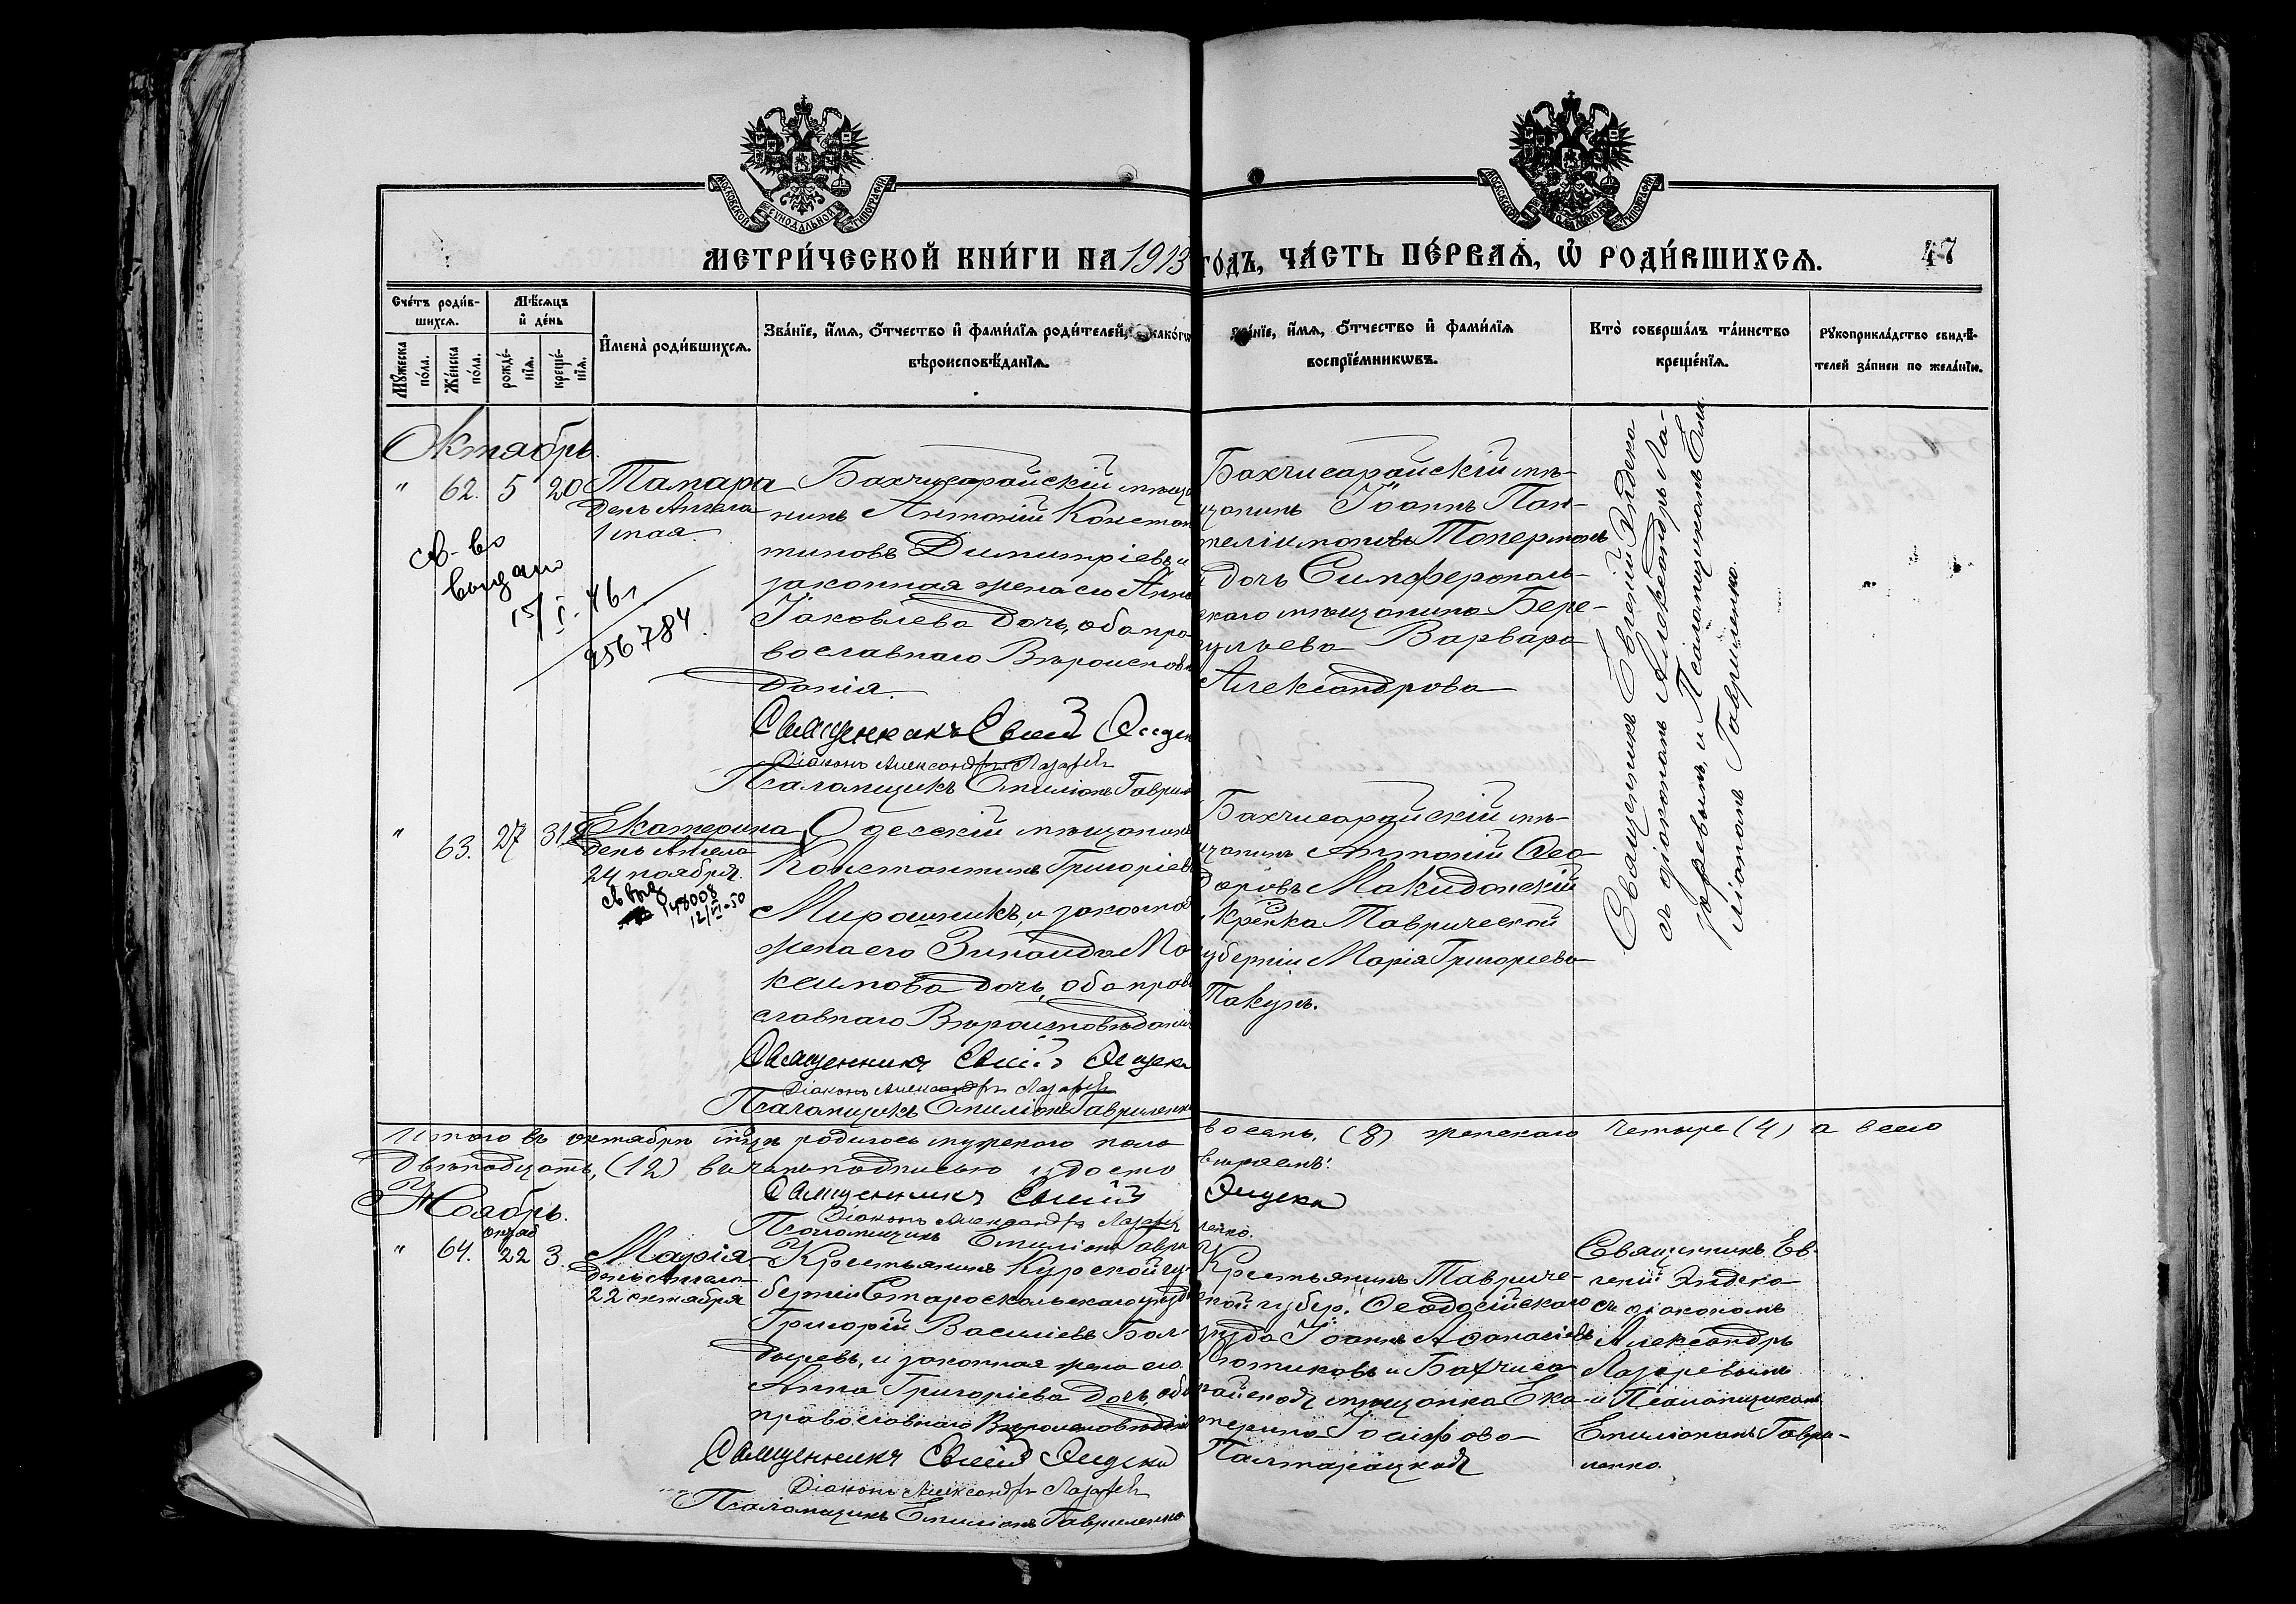 МОСКОВСКОЙ СУНОДАЛЬНОЙ ТИПОГРАФІИ
МОСКОВСКОЙ СУНОДАЛЬНОЙ ТИПОГРАФІИ
МЕТРИ́ЧЕСКОЙ КНИ́ГИ НА 1913 ГОДЪ, ЧА́СТЬ ПЕ́РВАѦ, Ѡ РОДИ́ВШИХСѦ.
47
Сче́тъ роди́в-
шихсѧ.
Мꙋ́жеска по́ла.
Же́нска по́ла.
Мѣ́сѧцъ
и҆ де́нь
рожде́-
нїѧ.
креще́-
нїѧ.
И҆мена̀ роди́вшихсѧ.
Зва́нїе, и҆́мѧ, ѻ҆́тчество и҆ фами́лїѧ роди́телей, какого
вѣроисповѣ́данїѧ.
Зва́нїе, и҆́мѧ, ѻ҆́тчество и҆ фами́лїѧ
воспрїе́мникѡвъ.
Кто̀ соверша́лъ та́инство
креще́нїѧ.
Рꙋкоприкла́дство свидѣ́-
телей за́писи по жела́нїю.
Октябрь.
" 62. 5 20 Тамара
День Ангела
1 мая.
св-во
выдано
15/I-46г
256784.
Бахчисарайскій мѣща
нинъ Антоній Констан
тиновъ Димитріевъ и
законная жена его Анна
Іаковлева дочь, оба пра
вославнаго Вѣроисповѣ
данія.
Священникъ Евгеній Эндека
Діаконъ Александръ Лазаревъ
Псаломщикъ Емиліонъ Гаврил
Бахчисарайскій мѣ-
щанинъ Іоаннъ Пан-
теліимоновъ
и дочь Симферополь-
скаго мѣщанина
Варвара
Александрова
Священникъ Евгеній Эндека
съ діакономъ Александръ Ла-
заревымъ, и Псаломщикомъ Еми
ліономъ Гавриленко.
" 63. 27 31 Екатерина
День Ангела
24 ноября.
св выд
148008
12/VI-50
Одесскій мѣщанинъ
Константинъ Григоріевъ
Мирошникъ, и законная
жена его Зинаида Ма
ксимова дочь, оба право
славнаго Вѣроисповѣданія
Священникъ Евгеній Эндека
Діаконъ Александръ Лазаревъ
Псаломщикъ Емиліонъ Гавриленко
Бахчисарайскій мѣ-
щанинъ Антоній Ѳео-
доровъ Македонскій
Кр‑нка Таврической
губерніи Марія Григорьева
Такунъ.
Итого въ октябрѣ м‑цѣ родилось мужского пола восемь, (8) женскаго четыре (4) а всего
двѣнадцать, (12) въ чемъ подписью удосто вѣряемъ:
Священникъ Евгеній Эндека
Діаконъ Александръ Лазаревъ
Псаломщикъ Емиліонъ Гаври ленко.
Ноябрь.
" 64. октяб 22 3. Марія
День Ангела
22 октября
Крестьянинъ Курской гу-
берніи Старооскольскаго уѣзда
Григорій Василіевъ Бол-
дыревъ, и законная жена его
Анна Григоріева дочь, оба
православнаго Вѣроисповѣданія
Священникъ Евгеній Эндека
Діаконъ Александръ Лазаревъ
Псаломщикъ Емиліонъ Гавриленко
Крестьянинъ Тавриче-
ской губер. Ѳеодосійскаго
уѣзда Іоаннъ Аѳанасіевъ
и Бахчиса
райская мѣщанка Ека-
терина Іосифова
Священникъ Ев-
геній Эндека
съ діакономъ
Александръ
Лазаревымъ
и Псаломщикомъ
Емиліономъ Гаври-
ленко.